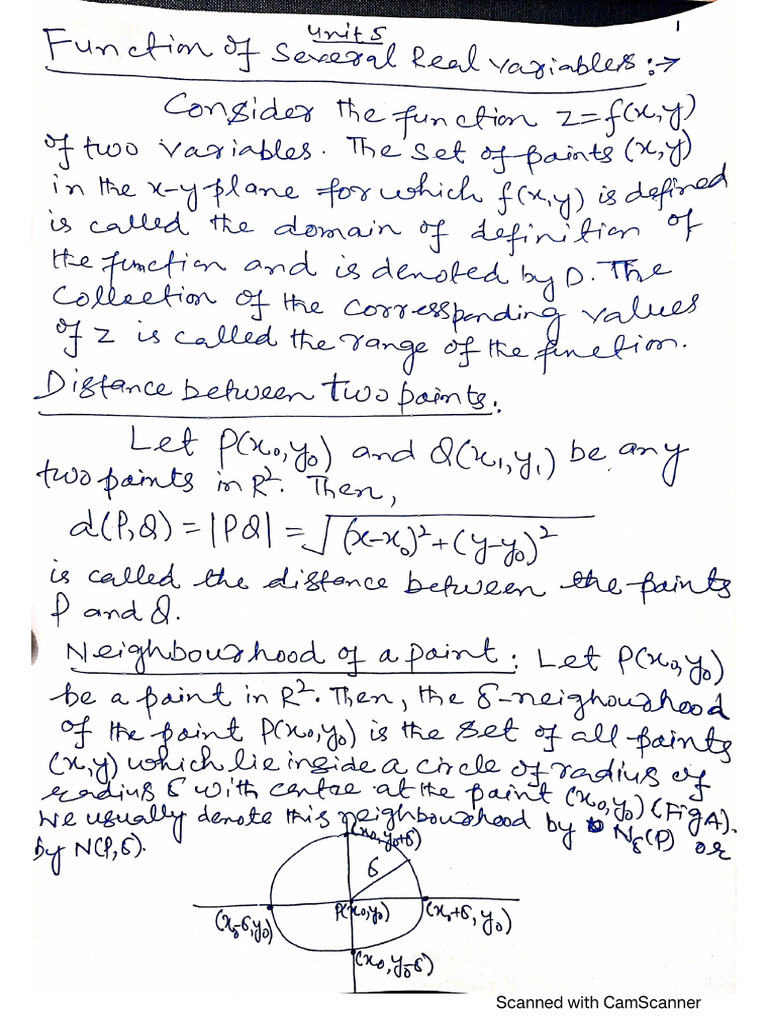 unit 5
1
Function of Several Real variables :→
Consider the function z=f(x,y)
of two variables. The set of points (x,y)
in the x-y plane for which f(x,y) is defined
is called the domain of definition of
the function and is denoted by D. The
collection of the corresponding values
of z is called the range of the function.
Distance between two points.
Let P(x₀,y₀) and Q(x₁,y₁) be any
two points in R². Then,
d(P,Q) = |PQ| = √(x-x₀)²+(y-y₀)²
is called the distance between the points
P and Q.
Neighbourhood of a point: Let P(x₀,y₀)
be a point in R². Then, the δ-neighourhood
of the point P(x₀,y₀) is the set of all points
(x,y) which lie inside a circle of radius of
radius δ with centre at the point (x₀,y₀) (Fig A).
We usually denote this neighbourhood by N_δ(P) or
by N(P,δ).
(x₀,y₀+δ)
δ
(x₀-δ,y₀)
P(x₀,y₀)
(x₀+δ,y₀)
(x₀,y₀-δ)
Scanned with CamScanner